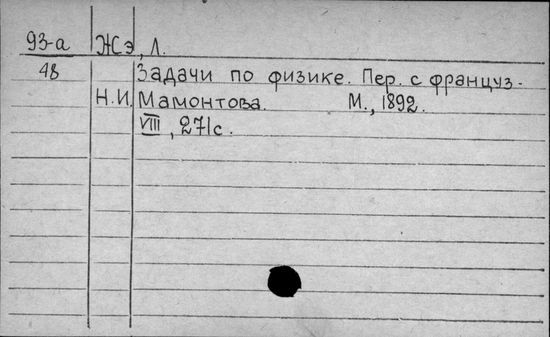 93-а Жэ, Л.
48 Задачи по физике. Пер. с француз-
Н.И. Мамонтова. М., 1892.
VIII, 271с.